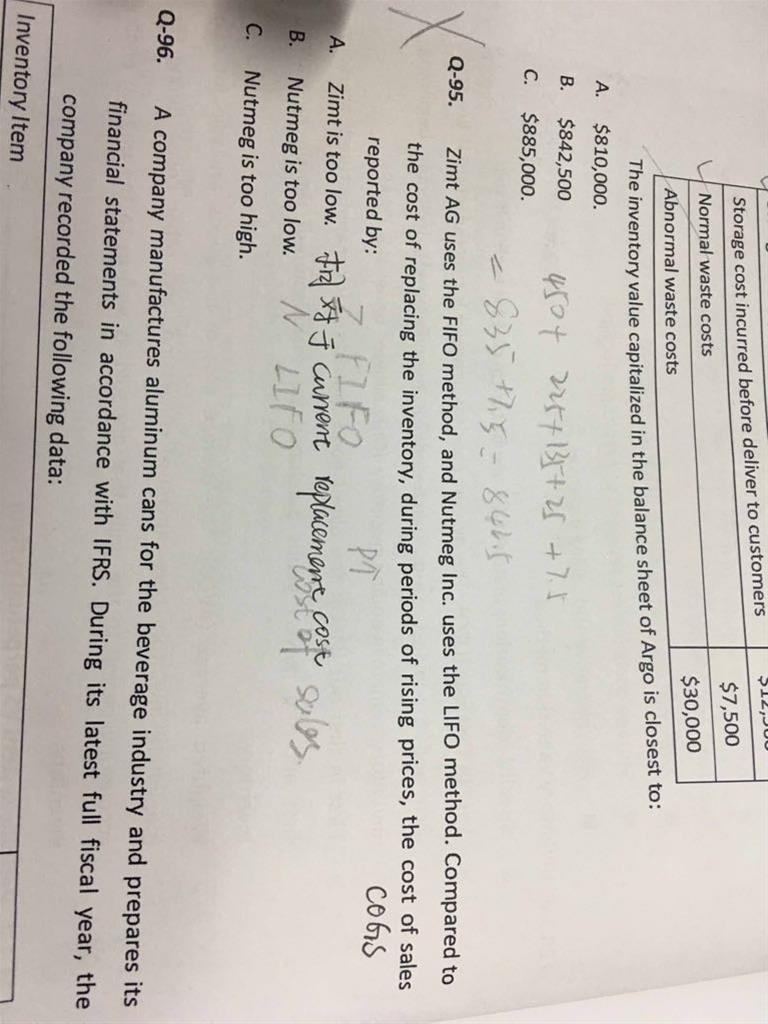 Storage cost incurred before deliver to customers
Normal waste costs $7,500
Abnormal waste costs $30,000
The inventory value capitalized in the balance sheet of Argo is closest to:
A. $810,000.
B. $842,500
C. $885,000.
450+ 225+135+25 +7.5
= 835 +7.5 = 842.5
Q-95. Zimt AG uses the FIFO method, and Nutmeg Inc. uses the LIFO method. Compared to
the cost of replacing the inventory, during periods of rising prices, the cost of sales
reported by:
COGS
P↑
A. Zimt is too low.
Z FIFO
相对于 current replacement cost
B. Nutmeg is too low.
N LIFO
cost of sales.
C. Nutmeg is too high.
Q-96. A company manufactures aluminum cans for the beverage industry and prepares its
financial statements in accordance with IFRS. During its latest full fiscal year, the
company recorded the following data:
Inventory Item